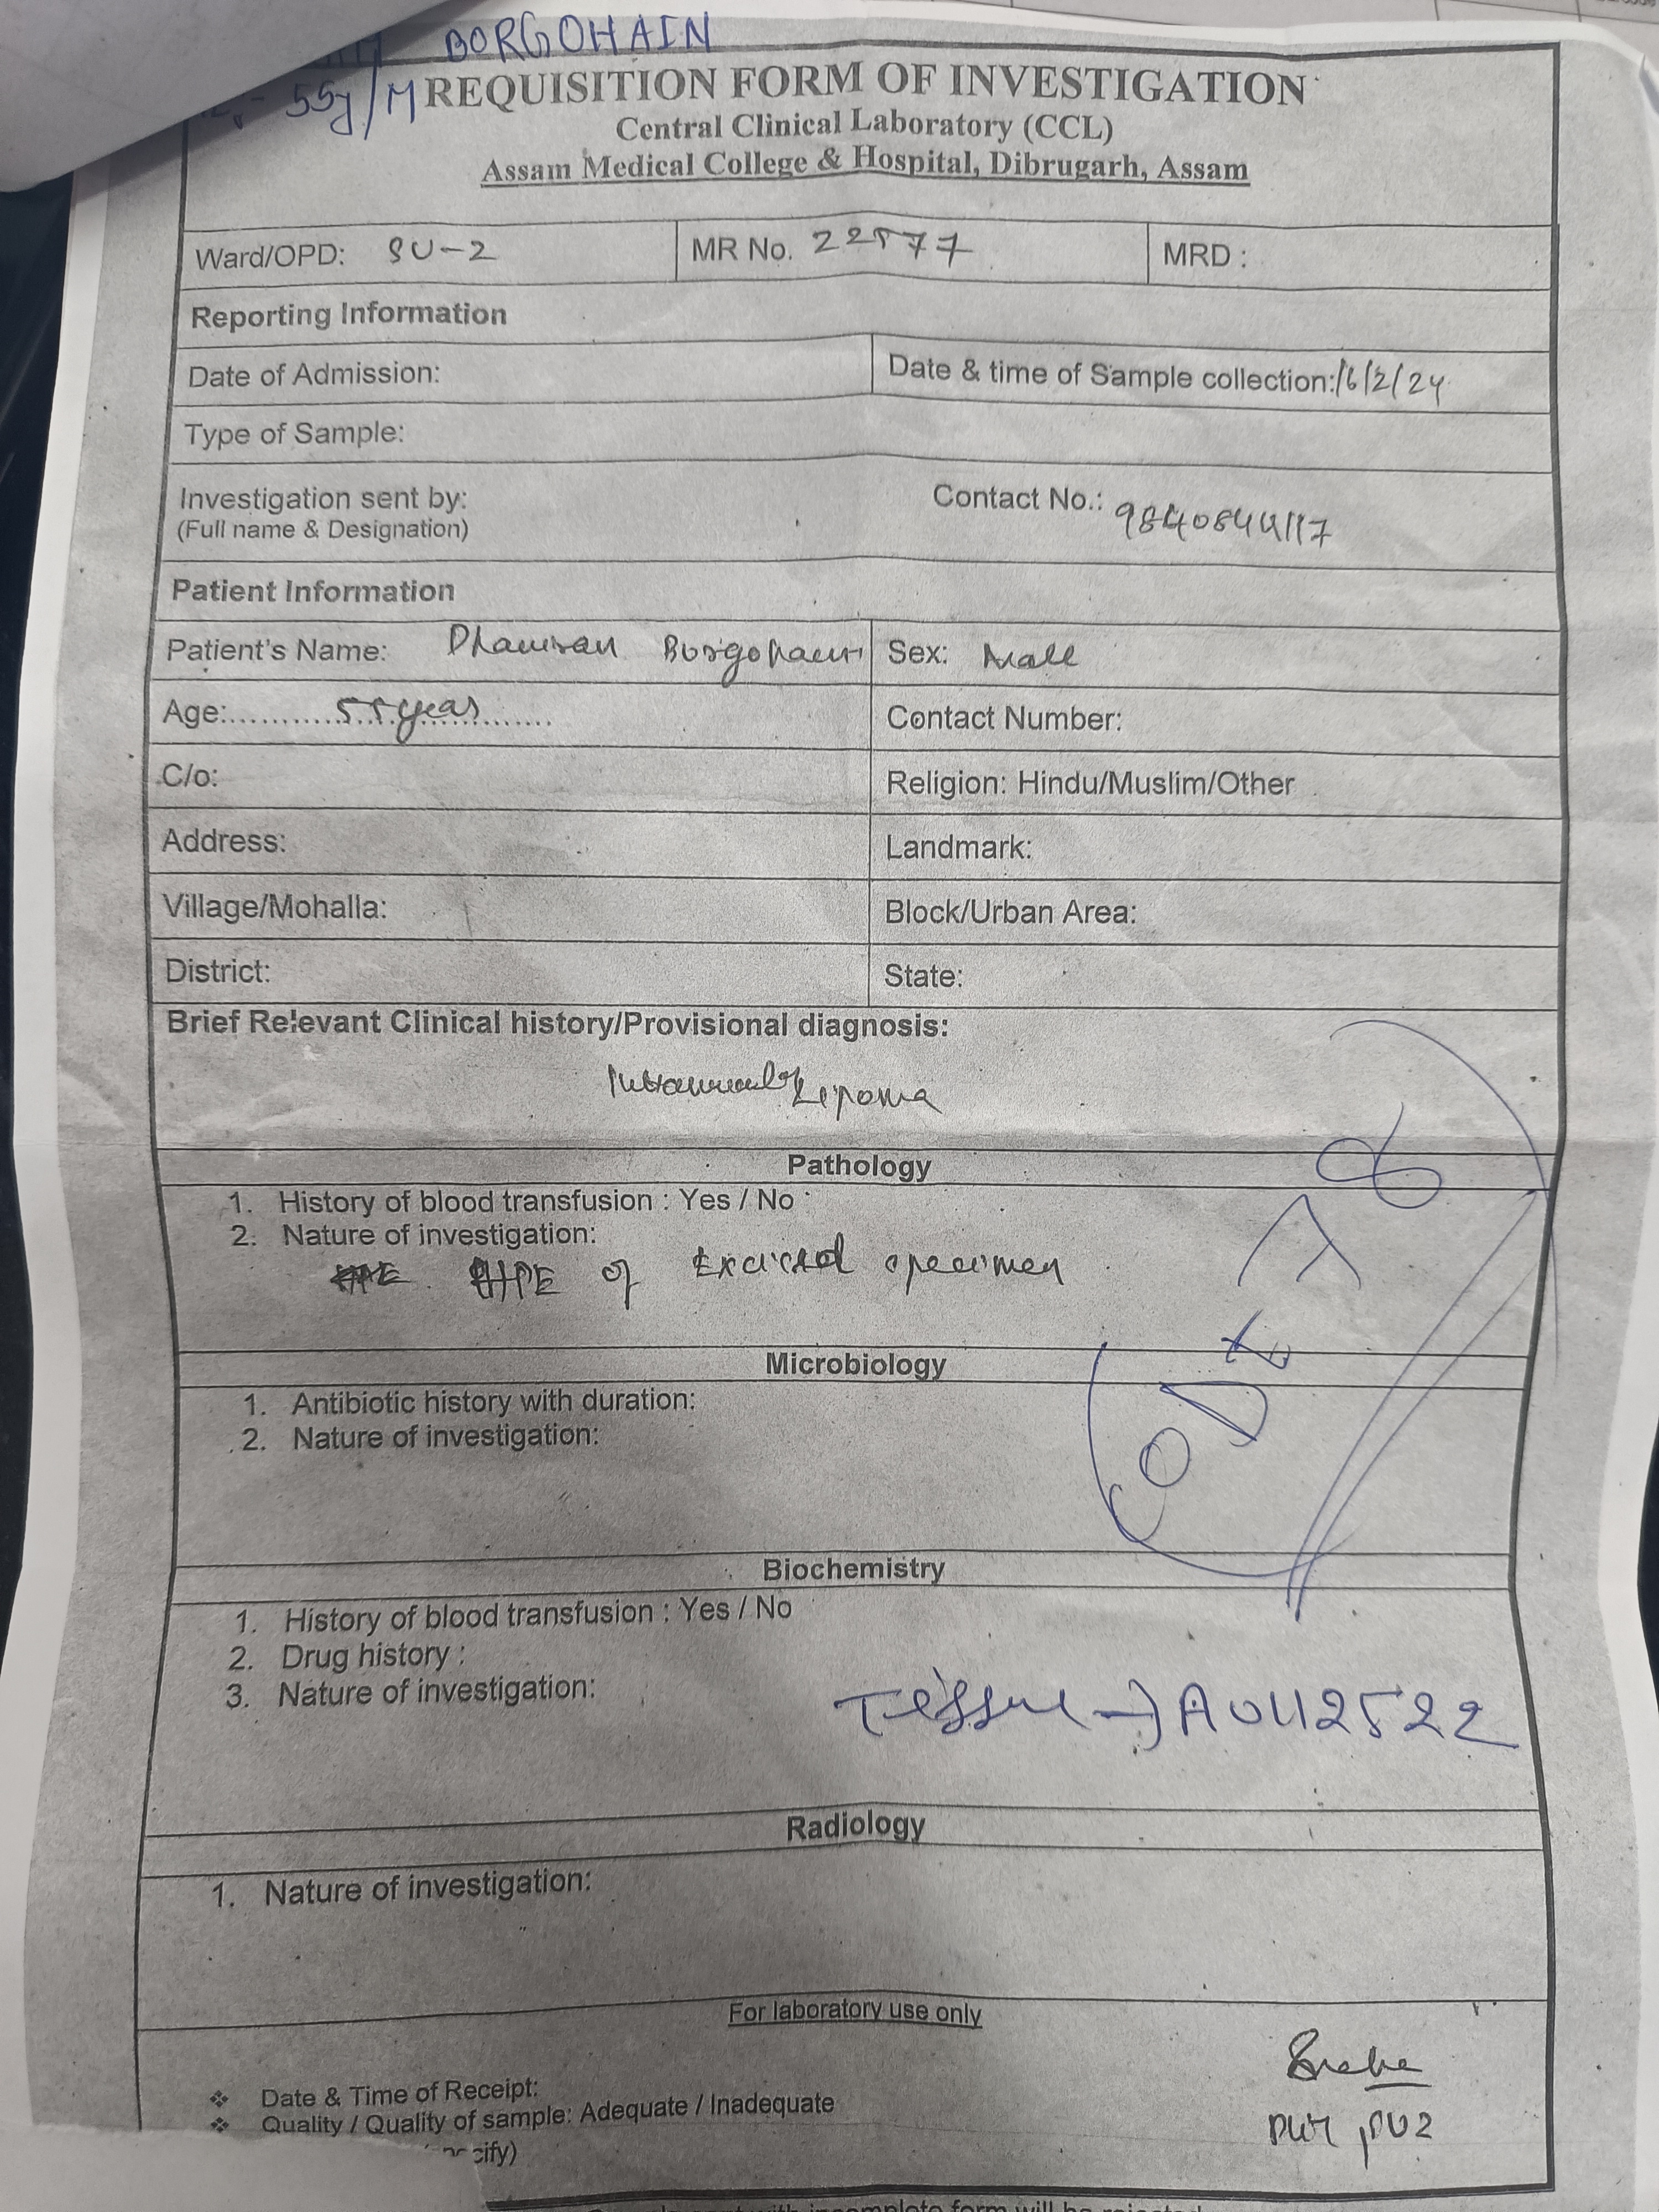 BORGOHAIN
55y/M
REQUISITION FORM OF INVESTIGATION
Central Clinical Laboratory (CCL)
Assam Medical College & Hospital, Dibrugarh, Assam
Ward/OPD: SU-2 MR No. 22577 MRD :
Reporting Information
Date of Admission: Date & time of Sample collection: 16/2/24
Type of Sample:
Investigation sent by: Contact No.:
(Full name & Designation)
Patient Information
Patient's Name: Borgohain Sex: Male
Age:.......55 years.......
Contact Number:
C/o: Religion: Hindu/Muslim/Other
Address: Landmark:
Village/Mohalla: Block/Urban Area:
District: State:
Brief Relevant Clinical history/Provisional diagnosis:
Lipoma
Pathology
1. History of blood transfusion : Yes / No
2. Nature of investigation:
HPE of Excised specimen
Microbiology
1. Antibiotic history with duration:
2. Nature of investigation:
CODE
Biochemistry
1. History of blood transfusion : Yes / No
2. Drug history :
3. Nature of investigation:
Tissue → A0112522
Radiology
1. Nature of investigation:
For laboratory use only
❖ Date & Time of Receipt:
❖ Quality / Quality of sample: Adequate / Inadequate